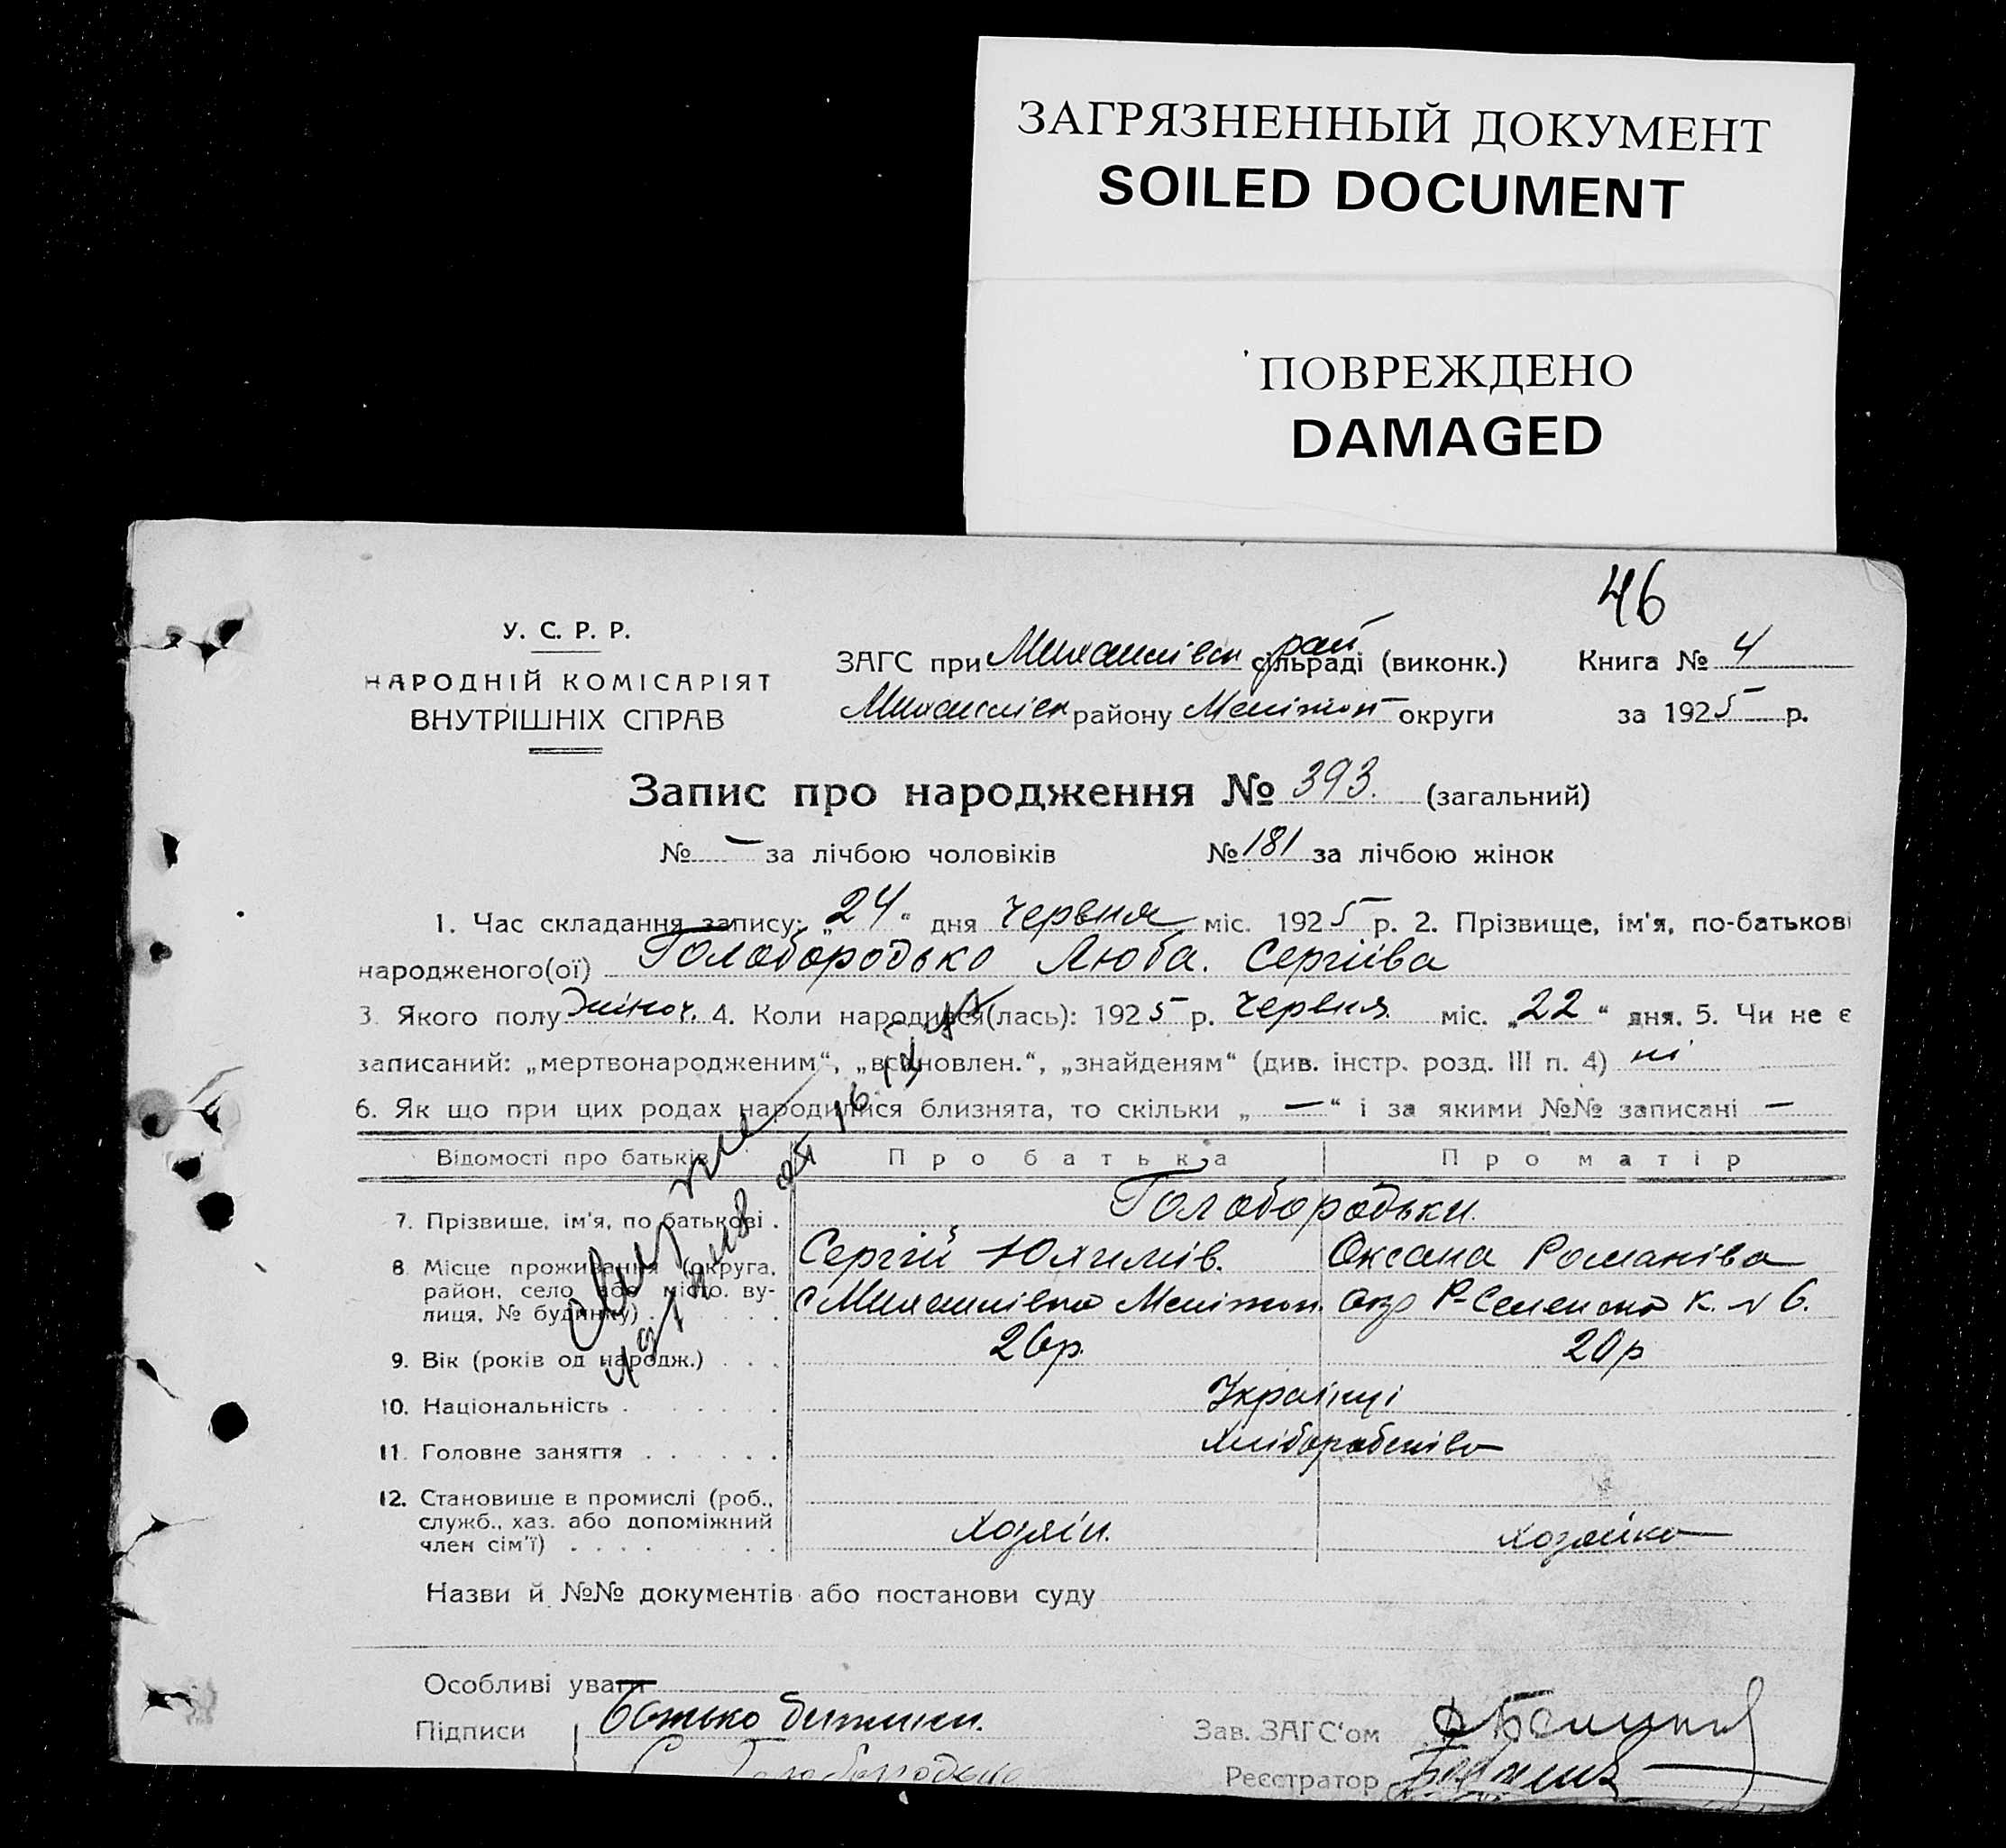 ЗАГРЯЗНЕННЫЙ ДОКУМЕНТ
SOILED DOCUMENT
ПОВРЕЖДЕНО
DAMAGED
46
У. С. Р. Р.
НАРОДНІЙ КОМІСАРІЯТ
ВНУТРІШНІХ СПРАВ
ЗАГС при Михайлівськ рай сільраді (виконк.) Книга № 4
Михайлівськ району Мелітоп округи за 1925 р.
Запис про народження № 393. (загальний)
№ — за лічбою чоловіків № 181 за лічбою жінок
1. Час складання запису: „24“ дня червня міс. 1925 р. 2. Прізвище, ім'я, по-батькові
народженого(ої) Голобородько Люба. Сергіїва
3. Якого полу жіноч. 4. Коли народився(лась): 1925 р. червня міс. „22“ дня. 5. Чи не є
записаний: „мертвонародженим“, „встановлен.“, „знайденям“ (див. інстр. розд. III п. 4) ні
6. Як що при цих родах народилися близнята, то скільки „ — “ і за якими №№ записані —
Відомості про батьків Про батька Про матір
7. Прізвище, ім'я, по батькові . Голобородьки.
Сергій Юхимів. Оксана Романіва
8. Місце проживання (округа, район, село або місто, вулиця, № будинку)
9. Вік (років од народж.) . . . 26р. 20р
10. Національність . . . . . . Українці
11. Головне заняття . . . . . . Хліборобство
12. Становище в промислі (роб.,
служб., хаз. або допоміжний
член сім'ї) . . . . . . . . Хозяїн. хозяйка
Назви й №№ документів або постанови суду
Особливі уваги
Підписи Батько дитини. Зав. ЗАГС'ом
С Голобородько Реєстратор